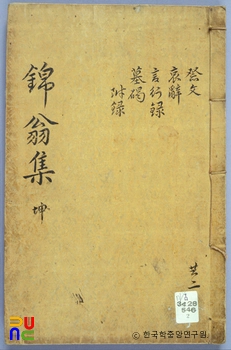 祭文
哀辭
言行録
墓碣
附録
錦翁集 坤
共二
3428
546
© 한국학중앙연구원